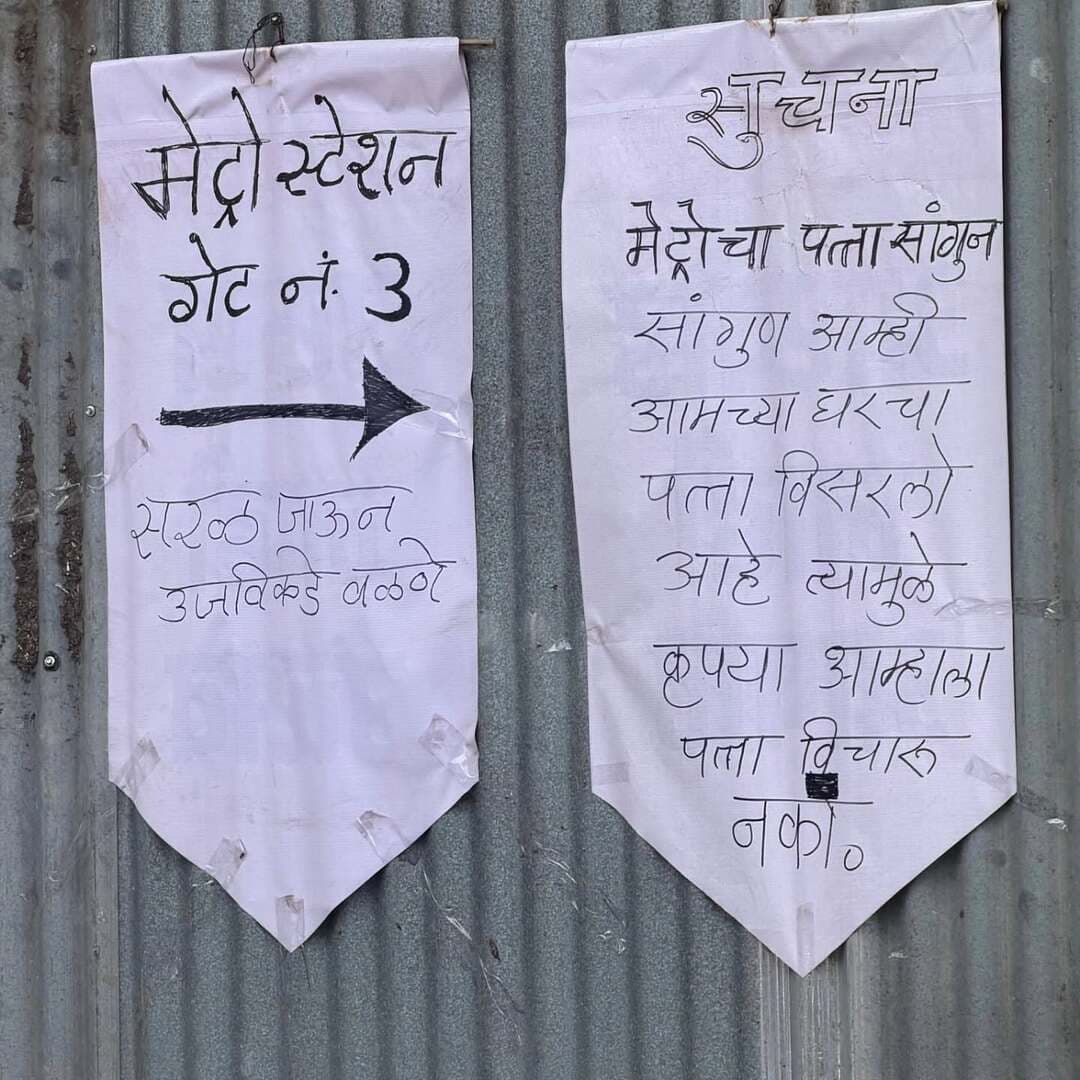 मेट्रो स्टेशन
गेट नं. 3
सरळ जाऊन
उजविकडे वळणे
सुचना
मेट्रोचा पत्ता सांगुन
सांगुण आम्ही
आमच्या घरचा
पत्ता विसरलो
आहे त्यामुळे
कृपया आम्हाला
पत्ता विचारू
नका.